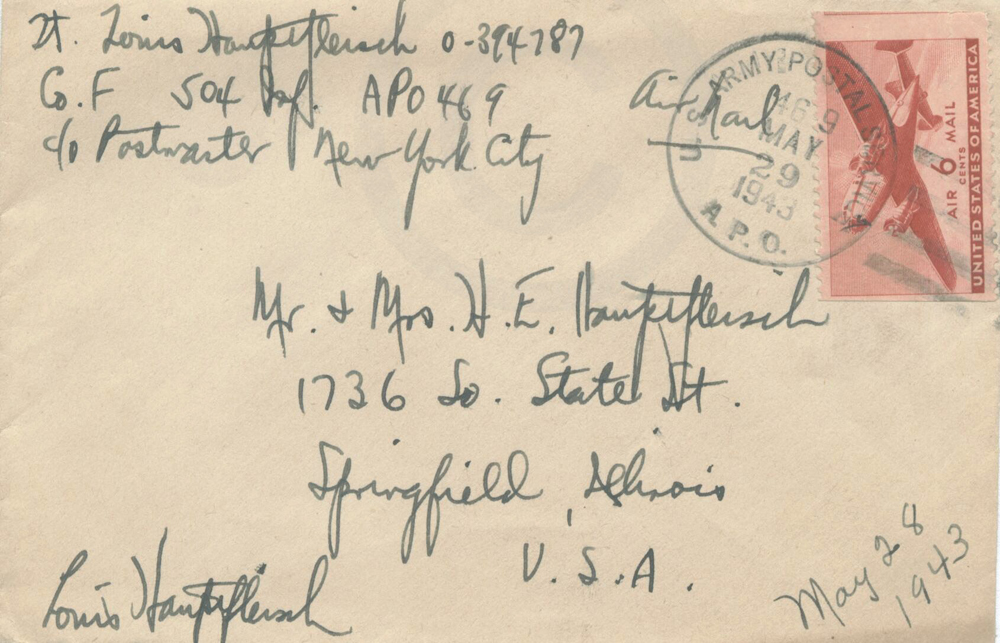 Lt. Louis Hauptfleisch O-394787
Co. F 504 Inf. APO 469
c/o Postmaster New York City
Air Mail
U.S. ARMY POSTAL SERVICE
469
MAY
29
1943
A.P.O.
AIR 6 CENTS MAIL
UNITED STATES OF AMERICA
Mr. & Mrs. H. E. Hauptfleisch
1736 So. State St.
Springfield, Illinois
U.S.A.
Louis Hauptfleisch
May 28
1943